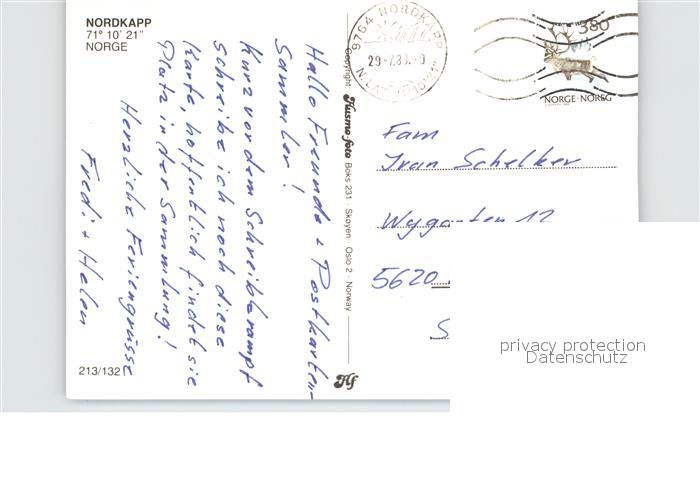 NORDKAPP
71° 10' 21"
NORGE
Hallo Freunde + Postkarten-
Sammler!
Kurz vor dem Schreibkrampf
schreibe ich noch diese
Karte, hoffentlich findet sie
Platz in der Sammlung!
Herzliche Feriengrüsse
Fredi + Helen
213/132
Copyright: Husmo-foto Boks 231 - Skøyen - Oslo 2 - Norway
Hf
9764 NORDKAPP
380
NORGE·NOREG
Fam
Ivan Schelker
12
5620
S
privacy protection
Datenschutz